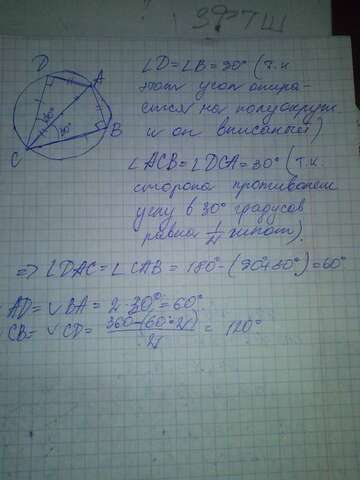 D
A
B
C
30°
30°
∠D=∠B=90° (т.к
этот угол опира-
ется на полуокруж
и он вписаный)
∠ACB=∠DCA=30° (т.к.
сторона противолеж
углу в 30° градусов
равна гипот).
=> ∠DAC=∠CAB = 180°-(90°+30°)=60°
AD= ∪BA= 2·30°=60°.
CB= ∪CD= 360-(60·2) / 2 = 120°